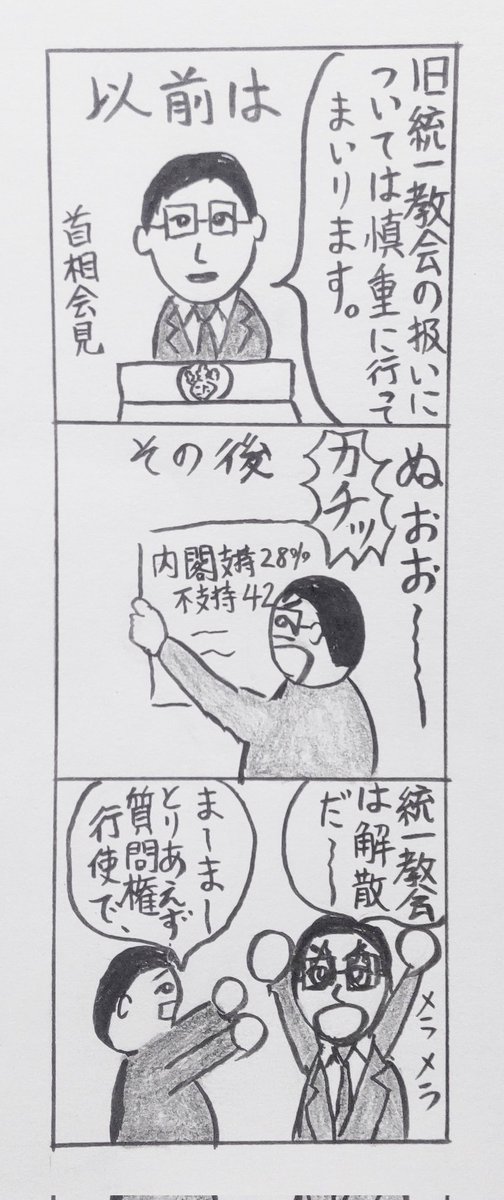 以前は
旧統一教会の扱いに
ついては慎重に行って
まいります。
首相会見
その後
カチッ
ぬおお〜
内閣支持28%
不支持42
統一教会
は解散
だ〜
まーまー
とりあえず
質問権
行使で、
メラメラ